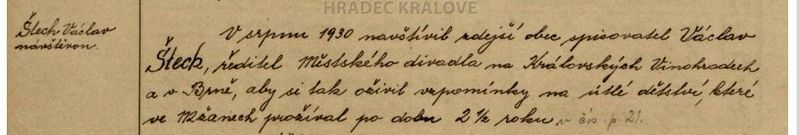 HRADEC KRÁLOVÉ
Štech Václav
návštěvou.
V srpnu 1930 navštívil zdejší obec spisovatel Václav
Štech, ředitel Městského divadla na Královských Vinohradech
a v Brně, aby si tak oživil vzpomínky na útlé dětství, které
ve Mžanech prožíval po dobu 2 ½ roku v čís. p. 21.